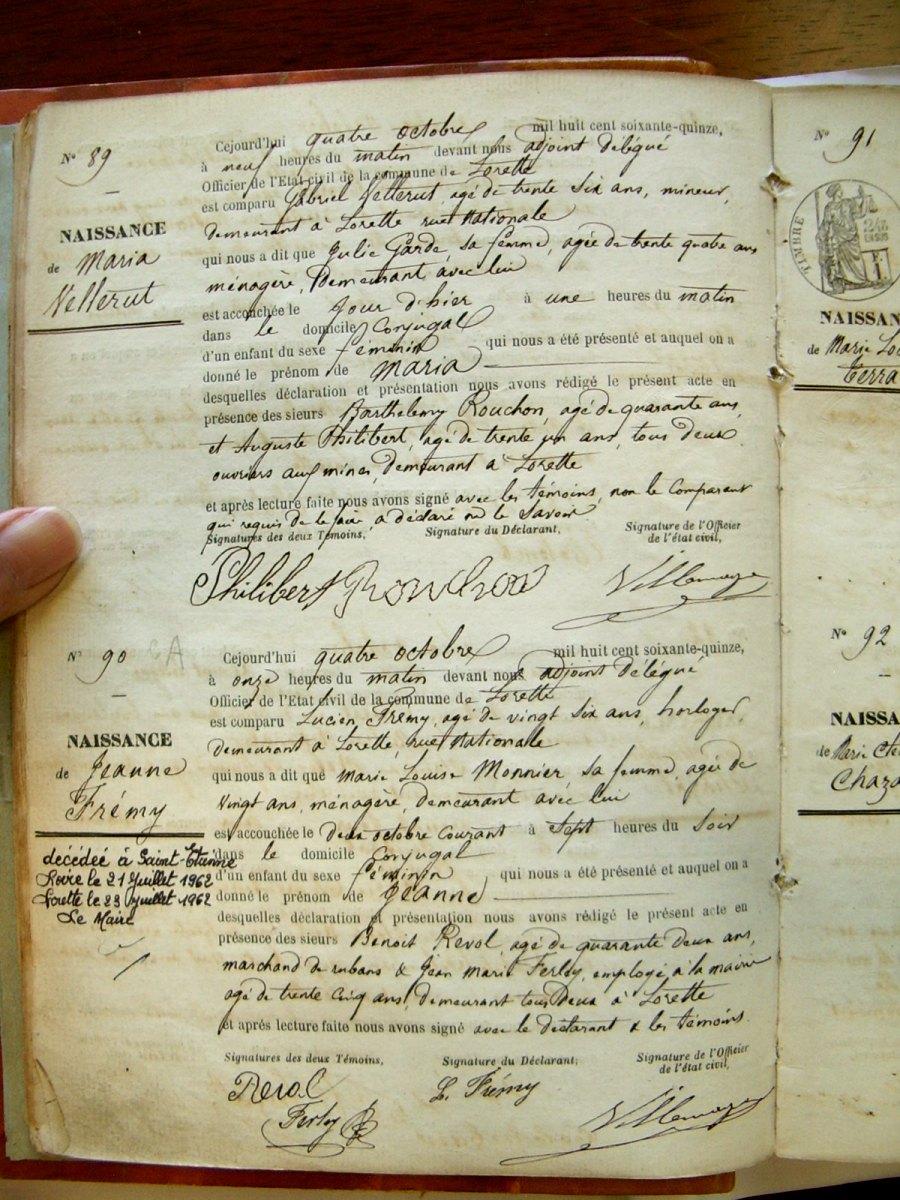 N° 89
NAISSANCE
de Maria
Vellerut
Cejourd'hui quatre octobre mil huit cent soixante-quinze,
à neuf heures du matin devant nous adjoint délégué
Officier de l'Etat civil de la commune de Lorette
est comparu Gabriel Vellerut, agé de trente six ans, mineur,
demeurant à Lorette rue Nationale
qui nous a dit que Julie Garde, sa femme, agée de trente quatre ans
ménagère, demeurant avec lui
est accouchée le jour d'hier à une heures du matin
dans le domicile conjugal
d'un enfant du sexe féminin qui nous a été présenté et auquel on a
donné le prénom de Maria
desquelles déclaration et présentation nous avons rédigé le présent acte en
présence des sieurs Barthelemy Rouchon, agé de quarante ans,
et Auguste Philibert, agé de trente un ans, tous deux
ouvriers aux mines, demeurant à Lorette
et après lecture faite nous avons signé avec les témoins, non le comparant
qui requis de le faire a déclaré ne le savoir
Signatures des deux Témoins, Signature du Déclarant, Signature de l'Officier
de l'état civil,
Philibert Rouchon Villemagne
N° 90 CA
NAISSANCE
de Jeanne
Frémy
décédée à Saint-Etienne
Loire le 21 Juillet 1962
Lorette le 23 Juillet 1962
Le Maire
Cejourd'hui quatre octobre mil huit cent soixante-quinze,
à onze heures du matin devant nous adjoint délégué
Officier de l'Etat civil de la commune de Lorette
est comparu Lucien Frémy, agé de vingt six ans, horloger,
demeurant à Lorette, rue Nationale
qui nous a dit que Marie Louise Monnier sa femme, agée de
vingt ans, ménagère, demeurant avec lui
est accouchée le deux octobre courant à sept heures du soir
dans le domicile conjugal
d'un enfant du sexe féminin, qui nous a été présenté et auquel on a
donné le prénom de Jeanne
desquelles déclaration et présentation nous avons rédigé le présent acte en
présence des sieurs Benoit Revol, agé de quarante deux ans,
marchand de rubans & Jean Marie Ferley, employé à la mairie
agé de trente cinq ans, demeurant tous deux à Lorette
et après lecture faite nous avons signé avec le déclarant & les témoins.
Signatures des deux Témoins, Signature du Déclarant, Signature de l'Officier
de l'état civil,
Revol L. Frémy
Ferley Villemagne
N° 91
TIMBRE
NAISSAN
de Marie Lo
Terra
N° 92
NAISSA
de Marie
Chaza